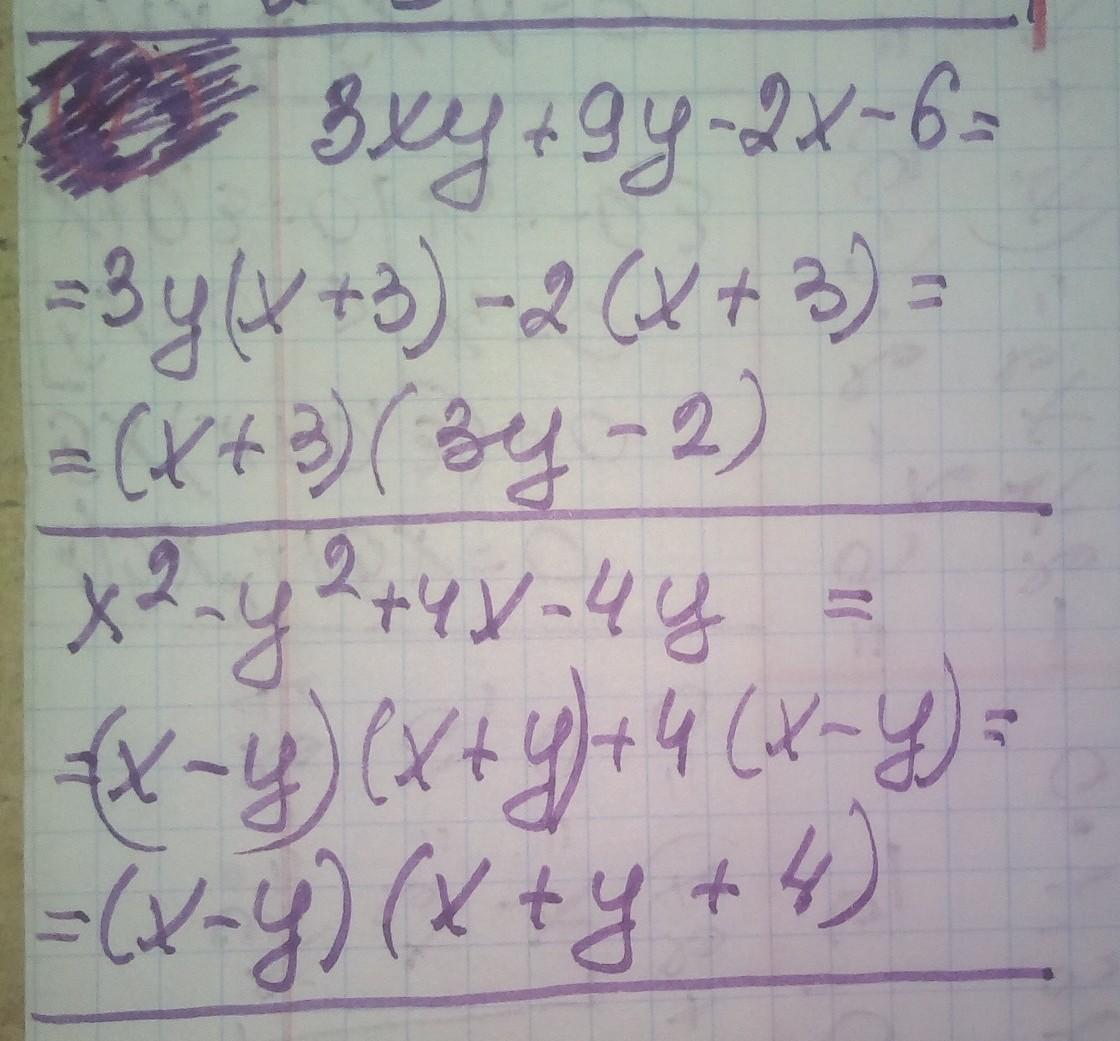 3xy + 9y - 2x - 6 =
= 3y(x + 3) - 2(x + 3) =
= (x + 3)(3y - 2)
x² - y² + 4x - 4y =
= (x - y)(x + y) + 4(x - y) =
= (x - y)(x + y + 4)